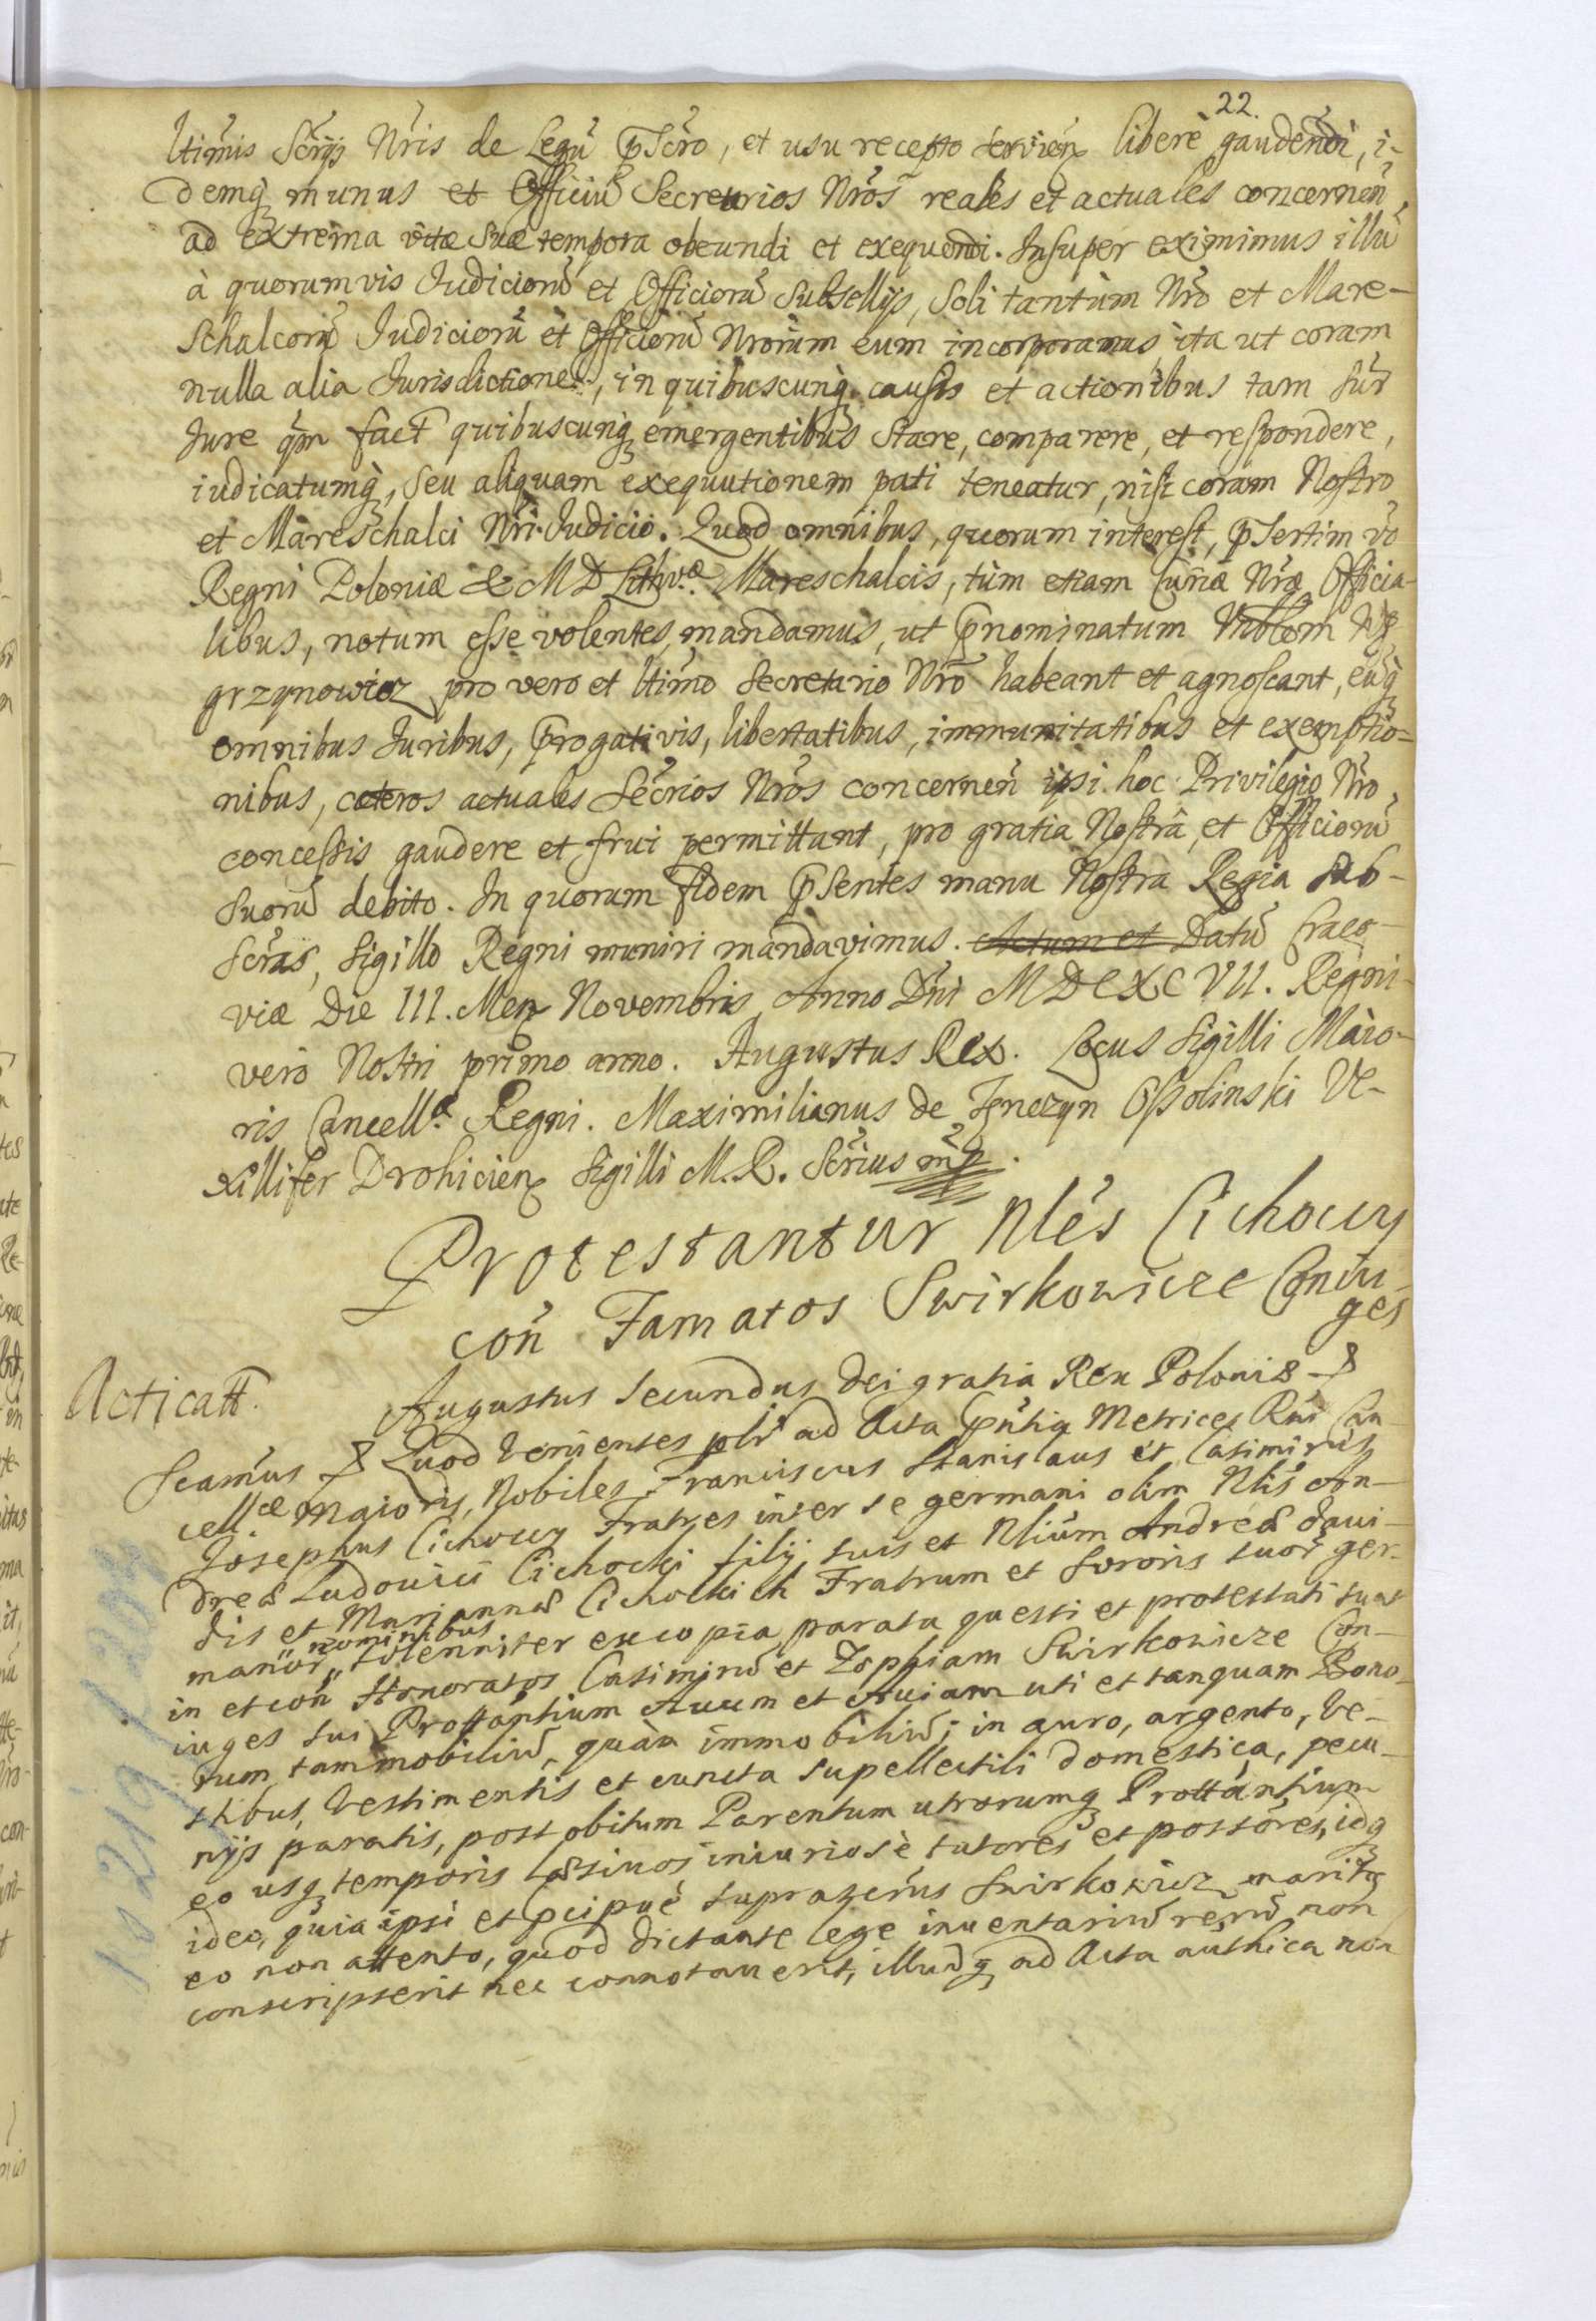 22.
ltimis Scrijs Nris de Legũ pscro, et usu recepto servien liberè gaudendi, i-
demq munus et Officiũ Secretarios Nros reales et actuales concernen
ad extrema vitæ suæ tempora obeundi et exequendi. Insuper eximimus illũ
à quorumvis Judiciorũ et Officiorũ Subsellijs, Soli tantùm Nro et Mare-
Schalcorũ Judiciorũ et Officiorũ Nrorum eum incorporamus, ita ut coram
nulla alia Jurisdictione, in quibuscunq causis et actionibus tam sur
Jure qm fact quibuscunq emergentibus Stare, comparere, et respondere,
iudicatumq, seu aliquam exequutionem pati teneatur, nisi coram Nostro
et Mareschalci Nri Judicio. Quod omnibus, quorum interest, psertim vo
Regni Poloniæ & M D Lithvæ Mareschalcis, tùm etiam Curiæ Nræ Officia-
libus, notum esse volentes, mandamus, ut pnominatum Nbblem Wę
grzynowicz pro vero et ltimo Secretario Nro habeant et agnoscant, eũq
omnibus Juribus, Progativis, libertatibus, immunitatibus et exemptio=
nibus, cæteros actuales Secrios Nros concernen ipsi hoc Privilegio Nro
concessis gaudere et frui permittant, pro gratia Nostrâ, et Officiorũ
suorũ debito. In quorum fidem psentes manu Nostra Regia sub-
scras, Sigillo Regni muniri mandavimus. Actum et Datũ Craco-
viæ Die III. Men Novembris Anno Dni MDCXCVII. Regni
verò Nostri primo anno. Augustus Rex. Locus Sigilli Maio-
ris Cancellæ Regni. Maximilianus de Tenczyn Ossolinski Ve-
xillifer Drohicien Sigilli M. R. Scrius mp.
Protestantur Nles Cichoccy
con Famatos Swirkowicze Coniu-
ges
Acticatt.
Augustus Secundus Dei gratia Rex Poloniæ &
Seamus & Quod Venientes plr ad Acta pntia Metrices Rni Can-
cellæ Maioris, Nobiles Franciscus Stanislaus et Casimirus
Josephus Cichoccy Fratres inter se germani olim Nlis An-
dreæ Ludovici Cichocki filij suis et Nlium Andreæ Davi-
dis et Mariannæ Cichockich Fratrum et Sororis suor ger-
nominibus
manor " solenniter ex copia parata questi et protestati sunt
in et con Honoratos Casimirũ et Zophiam Swirkowicze Con-
iuges sui Prottantium Auum et Auiam uti et tanquam Bono-
rum tam mobiliũ, quàm immobiliũ, in auro, argento, Ve-
stibus, Vestimentis et cuncta supellectili domestica, pecu-
nijs paratis, post obitum Parentum utrorumq Prottantium
eo usq temporis læsivos iniuriosè tutores et possores, idq
ideo, quia ipsi et pcipuè suprascrus Swirkowicz maritq
eo non attento, quod dictante lege inventariũ rerũ non
conscripserit nec connotaverit, illudq ad Acta authica non